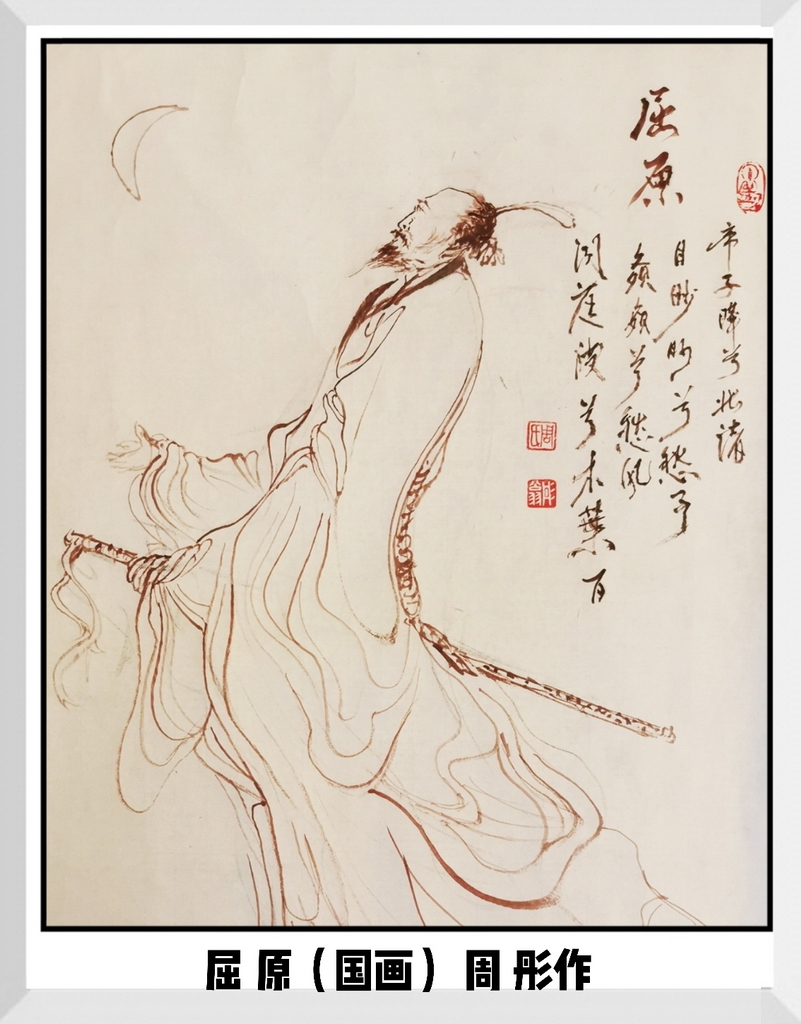 屈原
帝子降兮北渚
目眇眇兮愁予
兮愁风
洞庭波兮木葉
周氏
彤翁
屈原（国画）周彤作